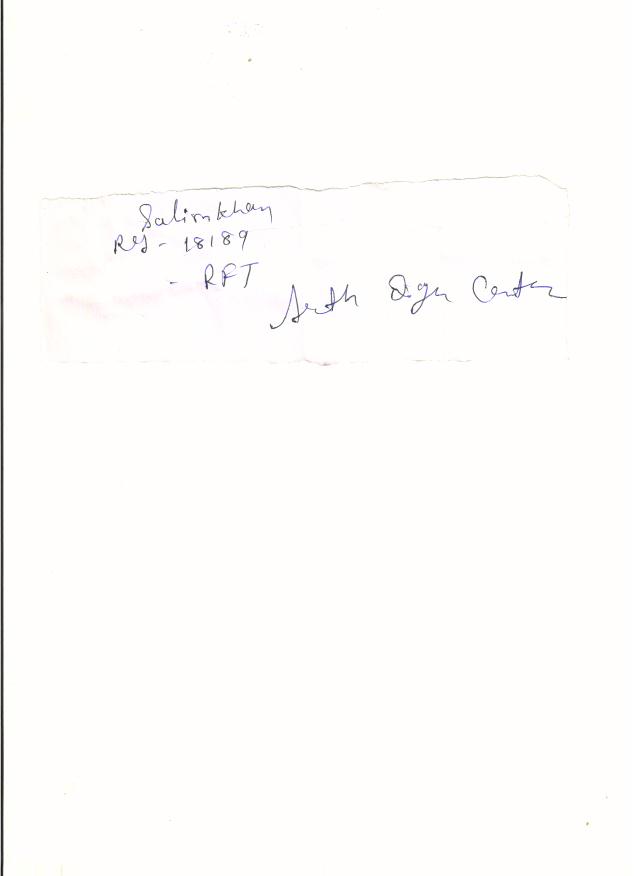 Salimkhan
Reg - 18189
- RFT
Arth Diagn Center